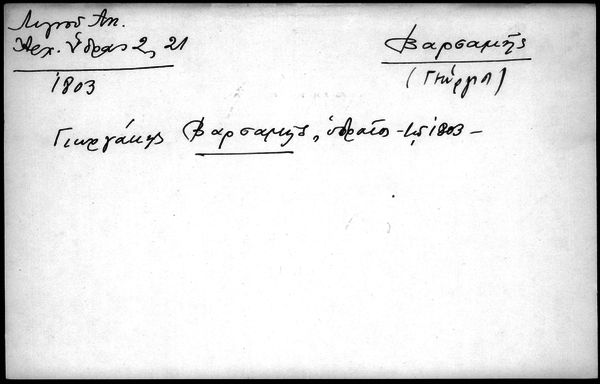 Λιγνού Αν.
Ἀρχ. Ὕδρας 2, 21
1803
Βαρσαμῆς
(Γιώργης)
Γιωργάκης Βαρσαμῆς, ὑδραῖος - 1803 -